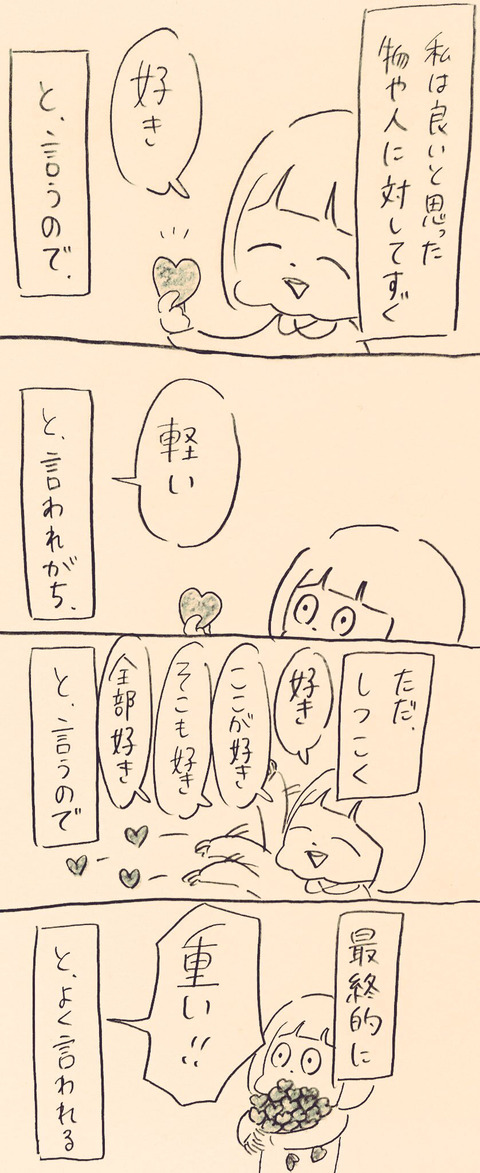 私は良いと思った
物や人に対してすぐ
好き
と、言うので、
軽い
と、言われがち、
ただ、
しつこく
好き
ここが好き
そこも好き
全部好き
と、言うので
最終的に
重い!!
と、よく言われる